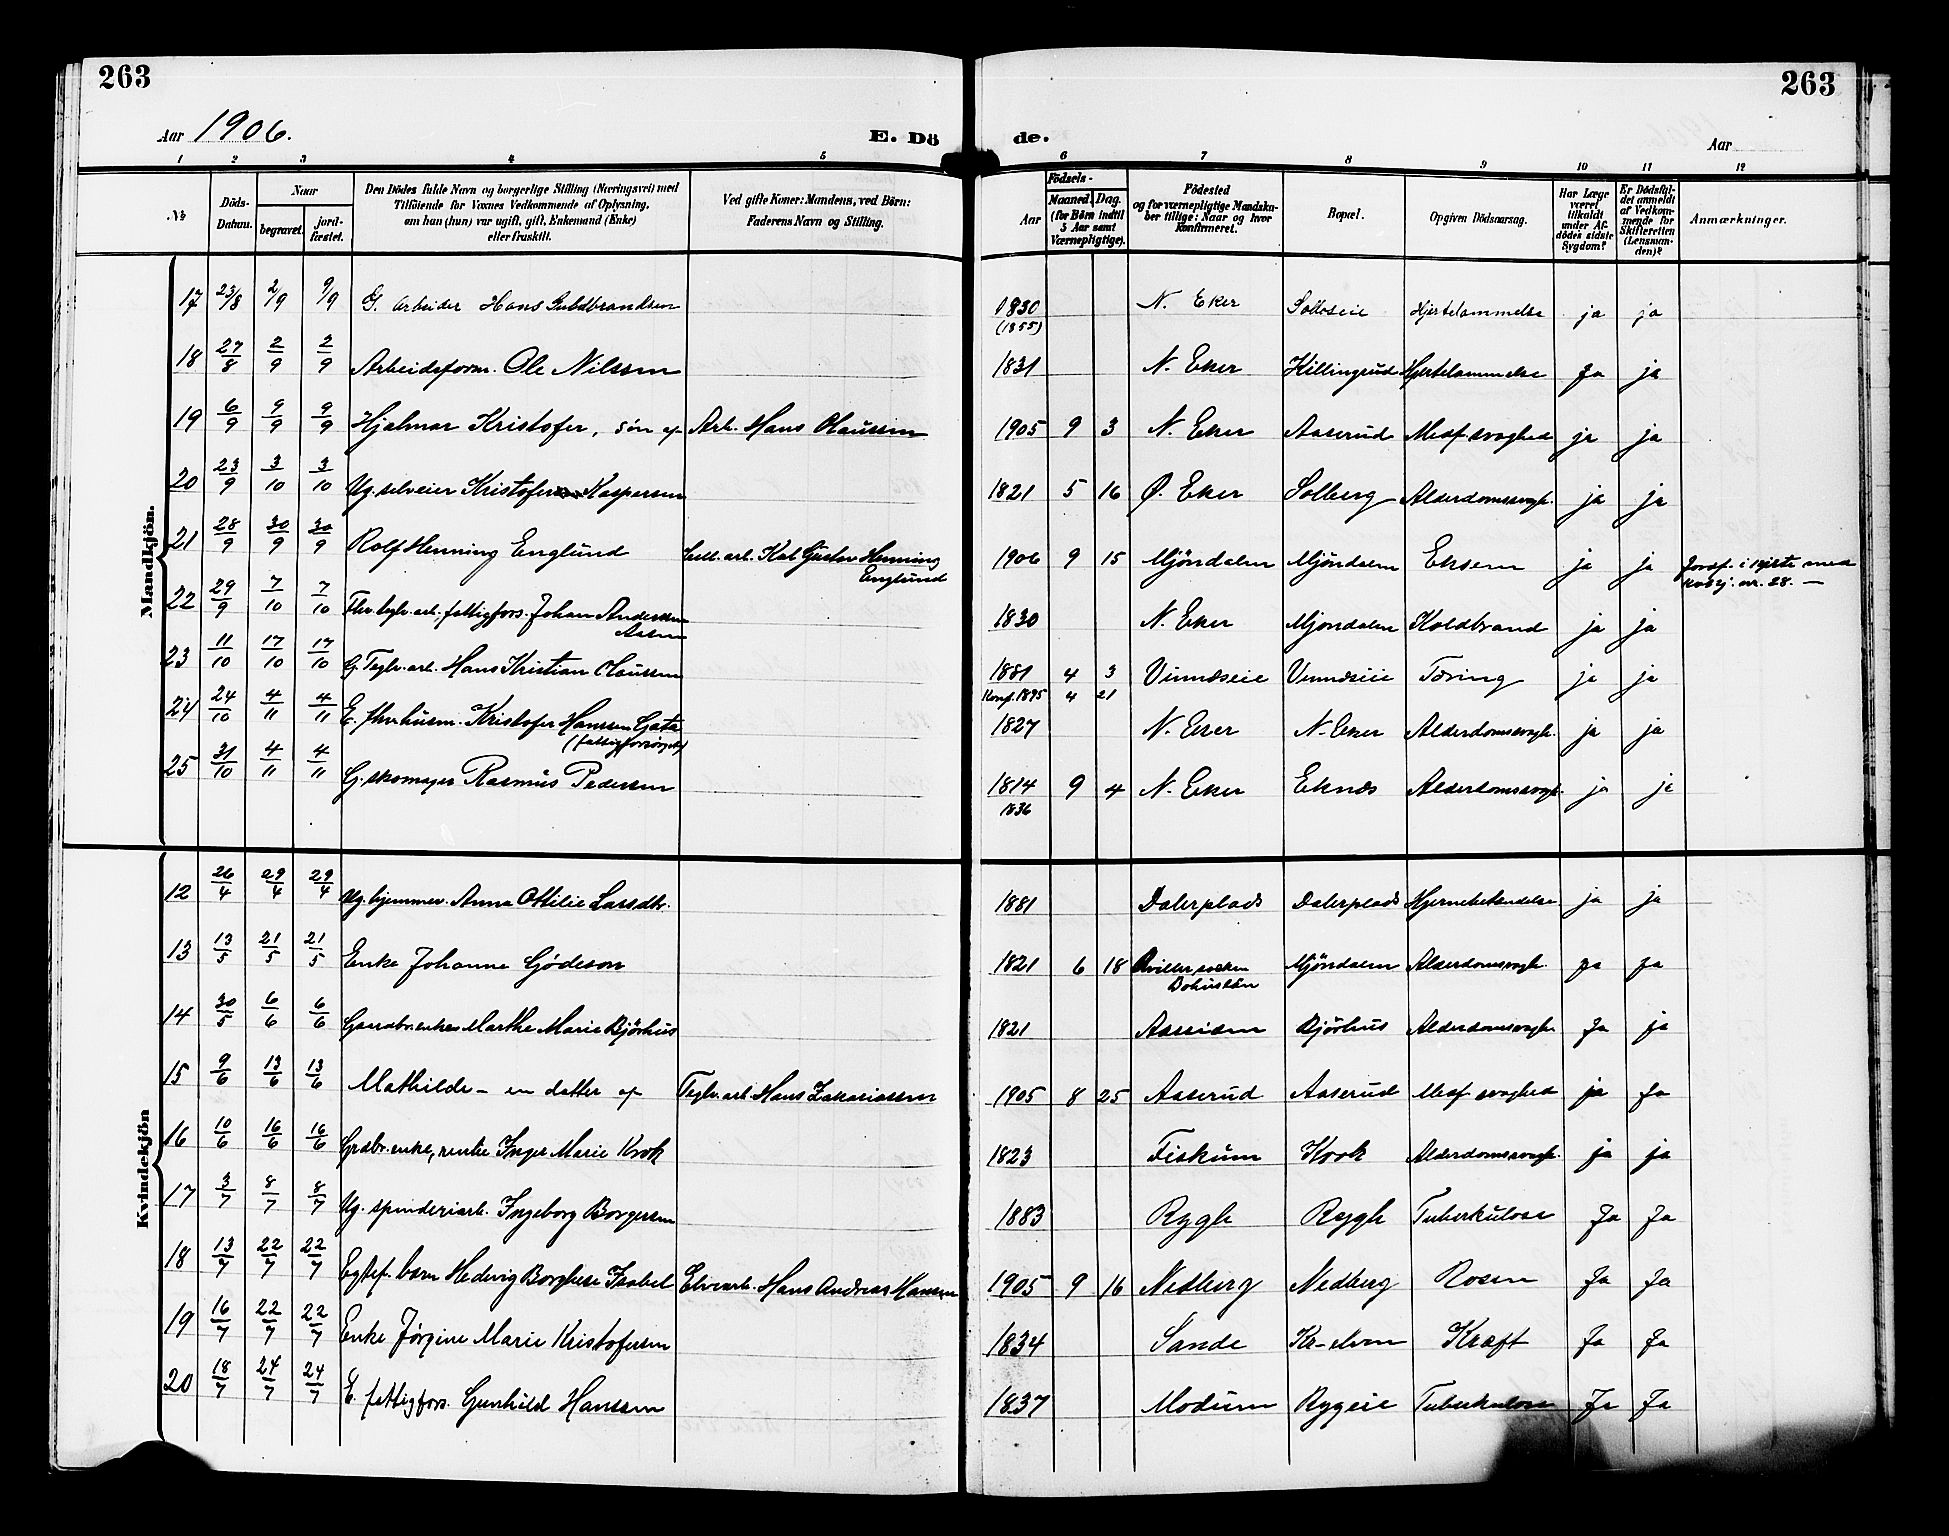 263
263
Aar 1906.
E. Dö
de.
Aar
1 2 3 4 5 6 7 8 9 10 11 12
№
Döds-Datum.
Naar
begravet.
jordfæstet.
Den Dödes fulde Navn og borgerlige Stilling (Næringsvei) med
Tilföiende for Voxnes Vedkommende af Oplysning,
om han (hun) var ugift, gift, Enkemand (Enke)
eller fraskilt.
Ved gifte Koner: Mandens, ved Börn:
Faderens Navn og Stilling.
Födsels-
Aar
Maaned. Dag.
(for Börn indtil
5 Aar samt
Værnepligtige).
Födested
og for værnepligtige Mandska-
ber tillige: Naar og hvor
konfirmeret.
Bopæl.
Opgiven Dödsaarsag.
Har Læge
været
tilkaldt
under Af-
dödes sidste
Sygdom?
Er Dödsfal-
det anmeldt
af Vedkom-
mende for
Skifteretten
(Lensman-
den)?
Anmærkninger.
Mandkjön.
17 23/8 2/9 9/9 G. arbeider Hans Guldbrandsen 1830 N. Eker Solbseie Hjertelammelse ja ja
(1855)
18 27/8 2/9 2/9 Arbeidsform. Ole Nilssen 1831 N. Eker Killingrud Hjertelammelse Ja ja
19 6/9 9/9 9/9 Hjalmar Kristofer, sön af Arb. Hans Olaussen 1905 9 3 N. Eker Aaserud Medf. svaghed ja ja
20 23/9 3/10 3/10 Ug. selveier Kristofer Kaspersen 1821 5 16 Ø. Eker Solberg Alderdomssvagh. ja ja
21 28/9 30/9 30/9 Rolf Henning Englund Cell. arb. Karl Gustav Henning 1906 9 15 Mjöndalen Mjöndalen Eksem ja ja Jordf. i kiste med
Englund
22 29/9 7/10 7/10 Fhv. teglv. arb., fattigfors. Johan Andersen 1830 N. Eker Mjöndalen Koldbrand ja ja
Aasen
23 11/10 17/10 17/10 G. Teglv. arb. Hans Kristian Olaussen 1881 4 3 Vinnæseie Vinnæseie Tæring ja ja
Konf. 1895 4 21
24 24/10 4/11 4/11 E. fhv. husm. Kristofer Hanssen Gata 1827 N. Eker N. Eker Alderdomssvagh. ja ja
(fattigforsörget)
25 31/10 4/11 4/11 G. skomager Rasmus Pedersen 1814 9 4 N. Eker Eknæs Alderdomssvagh. ja ja
1836
Kvindekjön
12 26/4 29/4 29/4 Ug. hjemmev. Anna Ottilie Larsdtr. 1881 Dalerplads Dalerplads Hjernebetændelse ja ja
13 13/5 21/5 21/5 Enke Johanne Gjödeson 1821 6 18 Mjöndalen Alderdomssvagh. ja ja
Bohuslän
14 30/5 6/6 6/6 Gaardbr. enke Marthe Marie Bjørhus 1821 Aassiden Bjørhus Alderdomssvagh. Ja ja
15 9/6 13/6 13/6 Mathilde – en datter af Teglv. arb. Hans Zakariassen 1905 8 25 Aaserud Aaserud Medf. svaghed ja Ja
16 10/6 16/6 16/6 Grdbr. enke, rentie Inger Marie Krok 1823 Fiskum Krok Alderdomssvagh. ja ja
17 3/7 8/7 8/7 Ug. spinderiarb. Ingeborg Borgersen 1883 Rygh Rygh Tuberkulose Ja Ja
18 13/7 22/7 22/7 Egtef. barn Hedvig Borghese Isabel Elvearb. Hans Andreas Hansen 1905 9 16 Nedberg Nedberg Rosen Ja Ja
19 16/7 22/7 22/7 Enke Jørgine Marie Kristofersen 1834 Sande Kr-elven Kræft Ja Ja
20 18/7 24/7 24/7 E. fattigfors. Gunhild Hanssen 1837 Modum Rygeie Tuberkulose Ja Ja